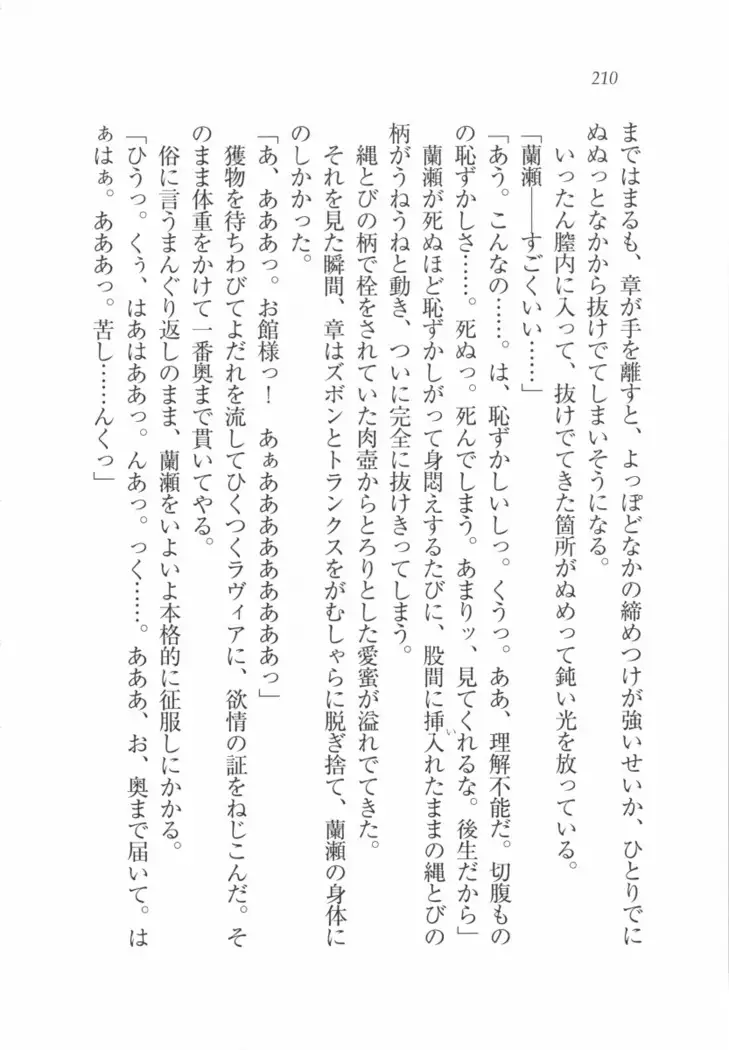 210
まではまるも、章が手を離すと、よっぽどなかの締めつけが強いせいか、ひとりでに
ぬぬっとなかから抜けでてしまいそうになる。
いったん膣内に入って、抜けでてきた箇所がぬめって鈍い光を放っている。
「蘭瀬――すごくいい……」
「あう。こんなの……。は、恥ずかしいしっ。くうっ。ああ、理解不能だ。切腹もの
の恥ずかしさ……。死ぬっ。死んでしまう。あまりッ、見てくれるな。後生だから」
蘭瀬が死ぬほど恥ずかしがって身悶えするたびに、股間に挿入れたままの縄とびの
い
柄がうねうねと動き、ついに完全に抜けきってしまう。
縄とびの柄で栓をされていた肉壺からとろりとした愛蜜が溢れでてきた。
それを見た瞬間、章はズボンとトランクスをがむしゃらに脱ぎ捨て、蘭瀬の身体に
のしかかった。
「あ、あああっ。お館様っ！　あぁああああああああああっ」
獲物を待ちわびてよだれを流してひくつくラヴィアに、欲情の証をねじこんだ。そ
のまま体重をかけて一番奥まで貫いてやる。
俗に言うまんぐり返しのまま、蘭瀬をいよいよ本格的に征服しにかかる。
「ひうっ。くぅ、はあはああっ。んあっ。っく……。あああ、お、奥まで届いて。は
ぁはぁ。あああっ。苦し……んくっ」